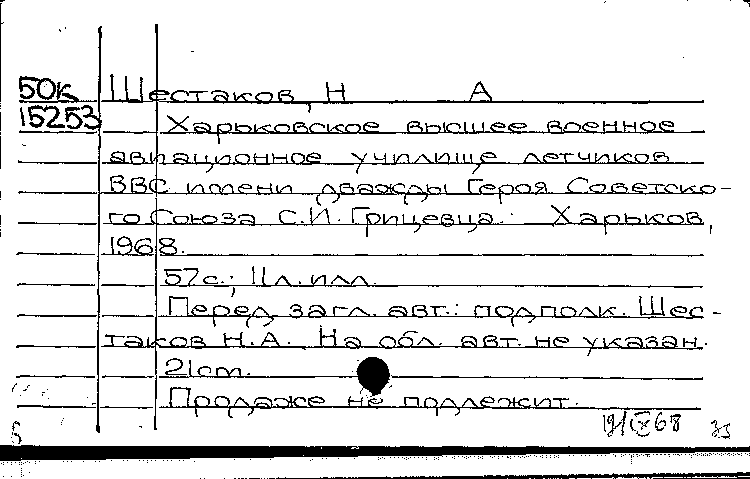 50к Шестаков, Н А
15253 Харьковское высшее военное
авиационное училище летчиков
ВВС имени дважды Героя Советско-
го Союза С.И. Грицевца. Харьков,
1968.
57с.; 11л.илл.
Перед загл. авт.: подполк. Шес-
таков Н.А. На обл. авт. не указан.
21cm.
Продаже не подлежит.